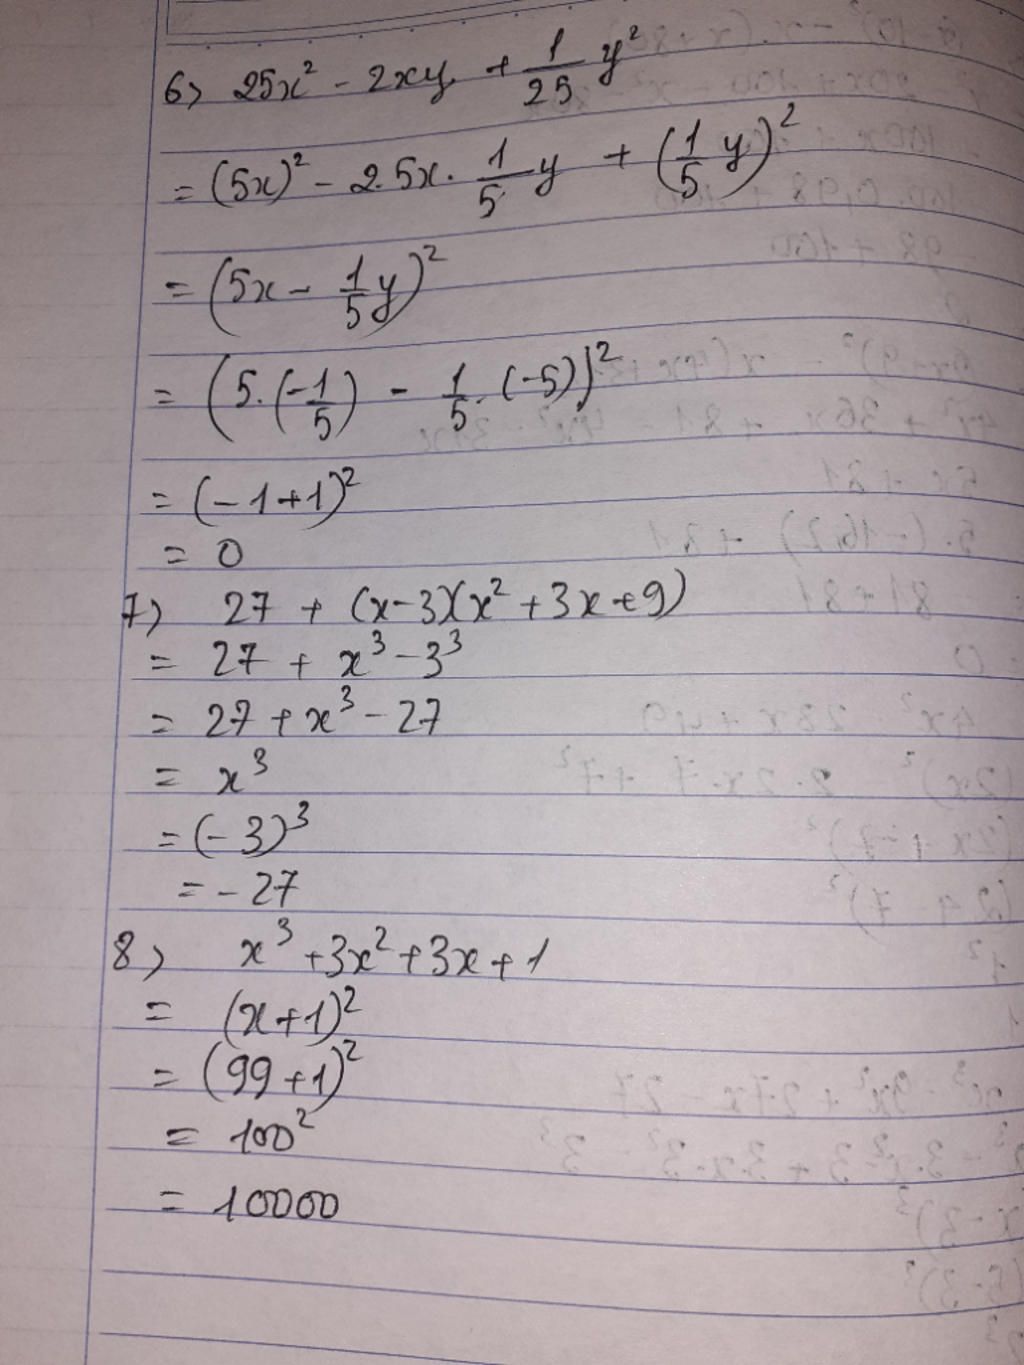 6) 25x² - 2xy + 1/25 y²
= (5x)² - 2.5x. 1/5 y + (1/5 y)²
= (5x - 1/5 y)²
= (5.(-1/5) - 1/5 . (-5))²
= (-1+1)²
= 0
7) 27 + (x-3)(x² + 3x+9)
= 27 + x³ - 3³
= 27 + x³ - 27
= x³
= (-3)³
= - 27
8) x³ + 3x² + 3x + 1
= (x+1)²
= (99+1)²
= 100²
= 10000